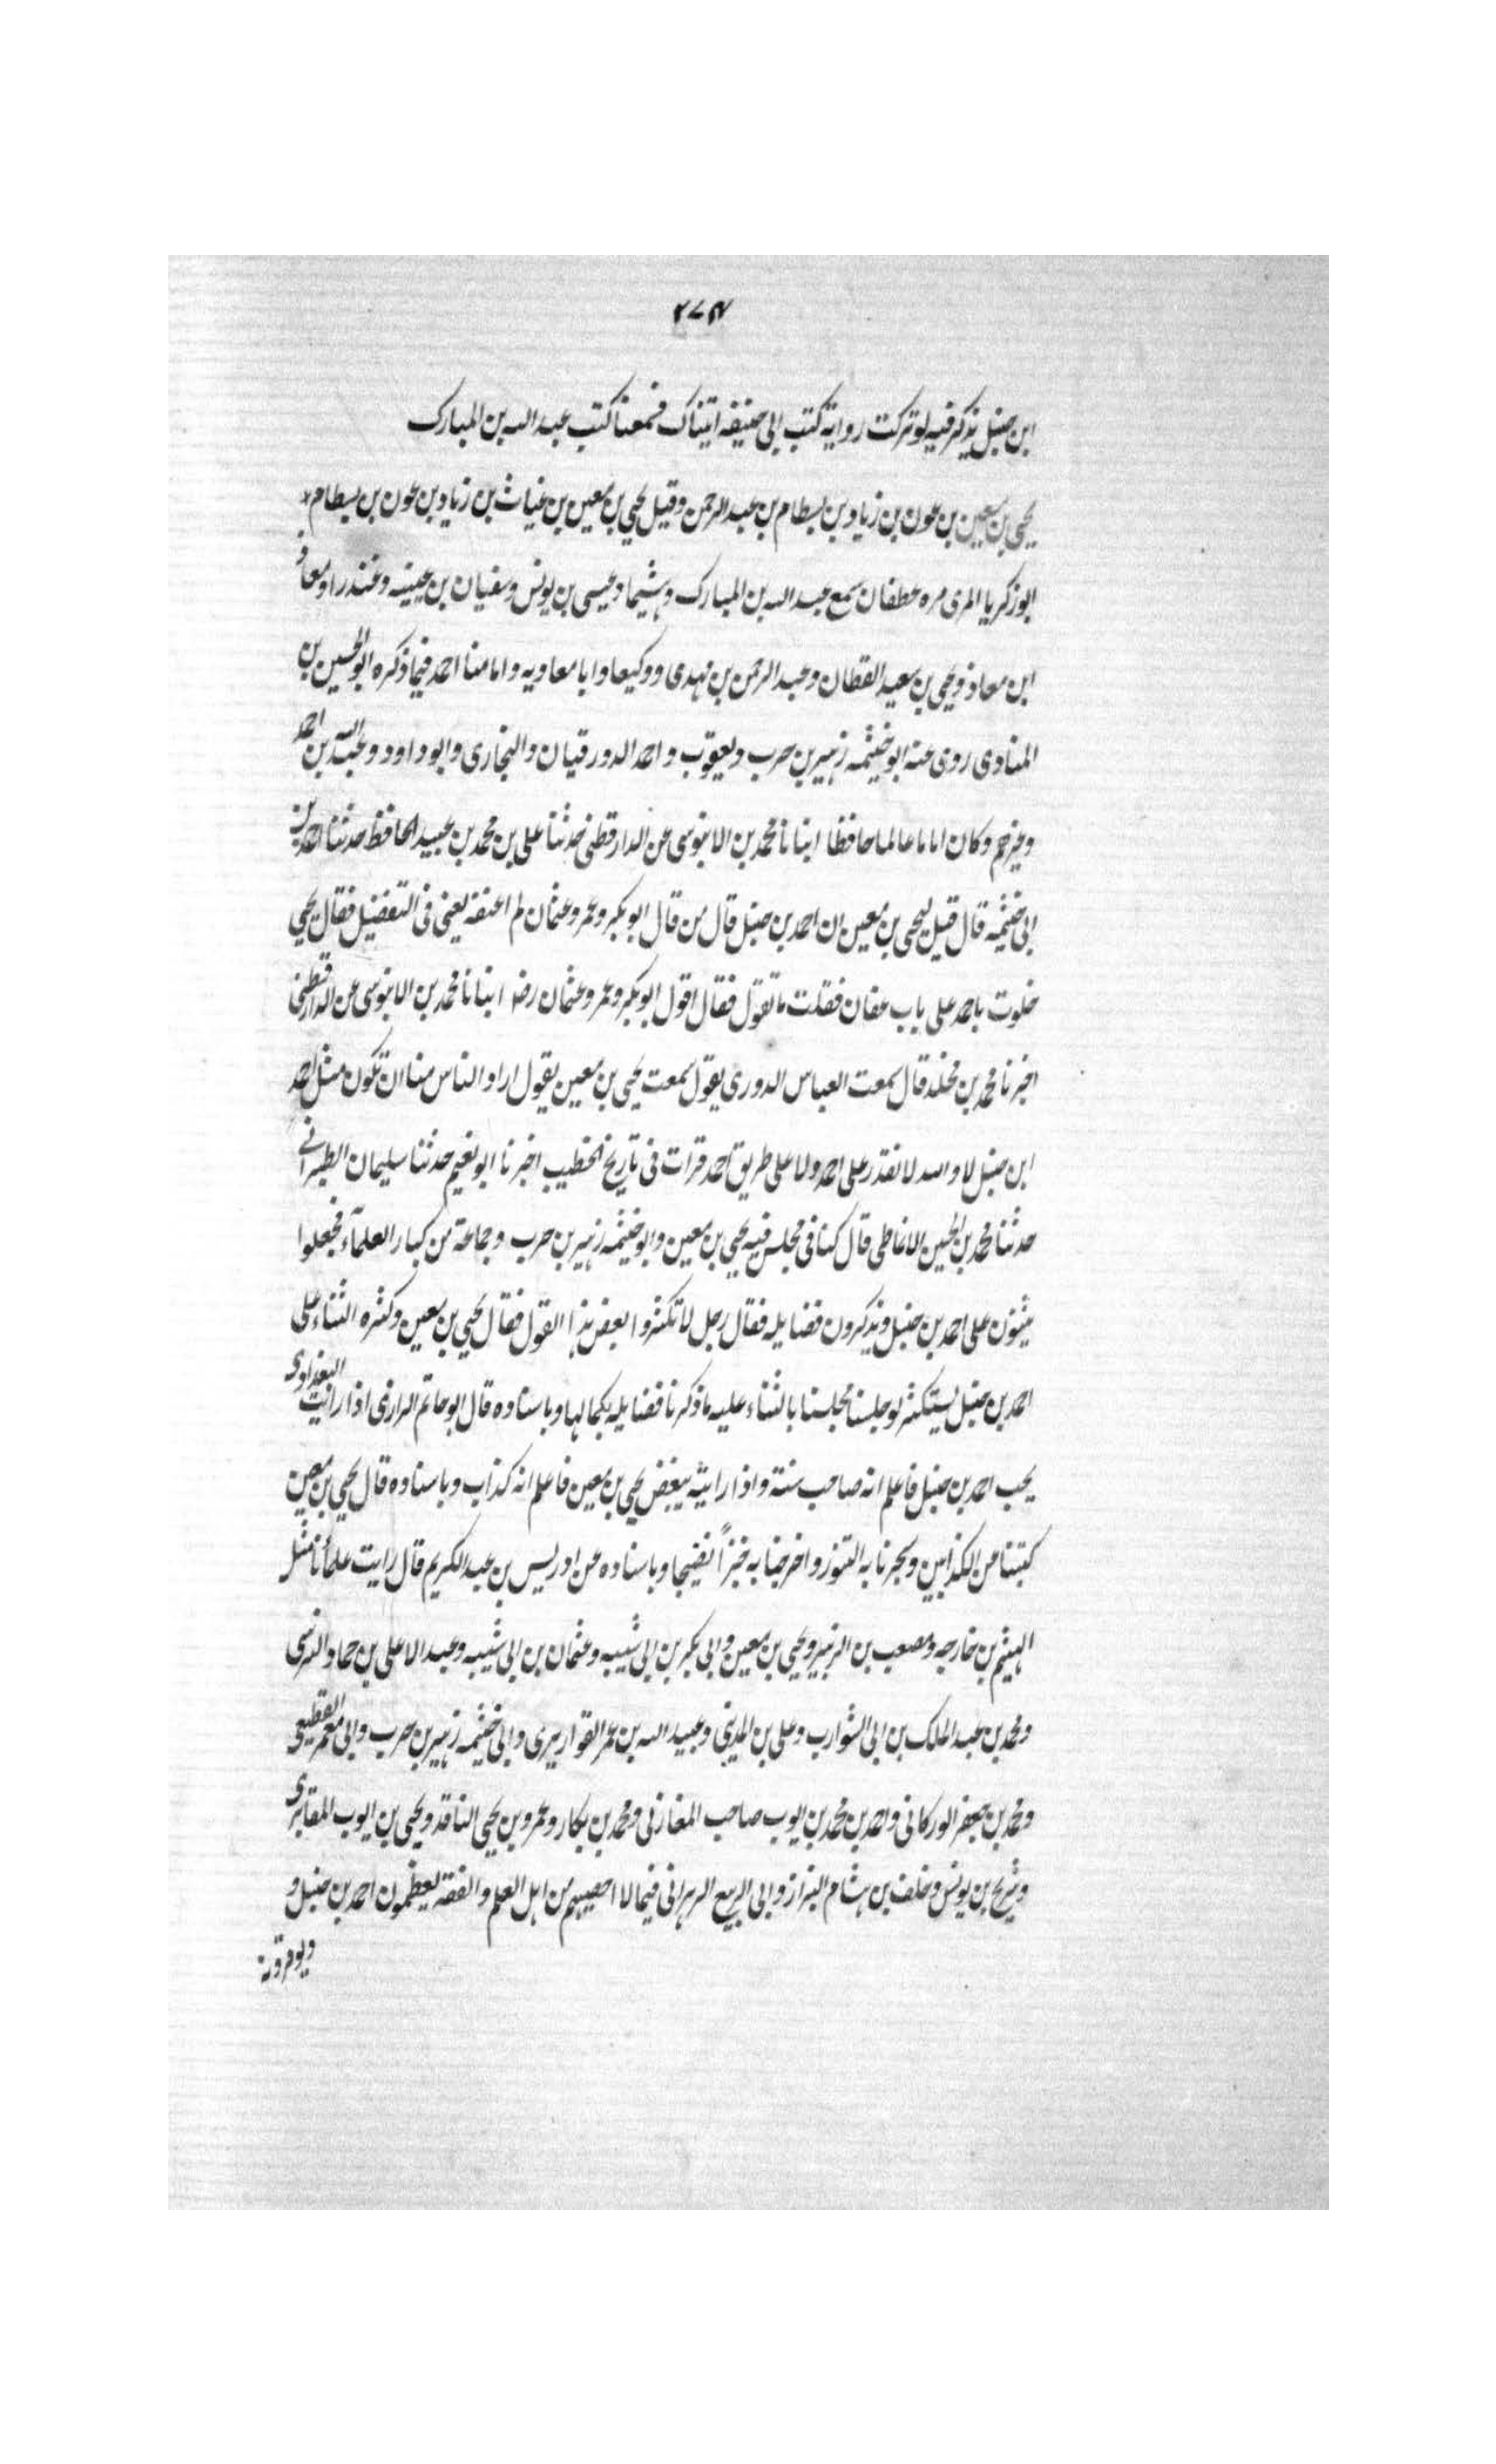 ٢٧٤
ابن حنبل يذكر فيه لو تركت رواية كتب ابي حنيفة اتيناك فسمعنا كتب عبد الله بن المبارك
يحيى بن معين بن عون بن زياد بن بسطام بن عبد الرحمن وقيل يحيى بن معين بن غياث بن زياد بن عون بن بسطام
ابو زكريا المرى مره غطفان سمع عبد الله بن المبارك وهشيما وعيسى بن يونس وسفيان بن عيينه وغندرا ومعاذ
ابن معاذ ويحيى بن سعيد القطان وعبد الرحمن بن مهدى ووكيعا وابا معاويه وامامنا احمد فيما ذكره ابو الحسين بن
المنادى روى عنه ابو خيثمه زهير بن حرب ويعقوب واحمد الدورقيان والبخارى وابو داود وعبد الله بن احمد
وغيرهم وكان اماما عالما حافظا انبانا محمد بن الابنوسى عن الدارقطنى حدثنا على بن محمد بن عبيد الحافظ حدثنا احمد بن
ابى خيثمه قال قيل ليحيى بن معين ان احمد بن حنبل قال من قال ابو بكر وعمر وعثمان لم اعنفه يعنى فى التفضيل فقال يحيى
خلوت باحمد على باب عفان فقلت ما تقول فقال اقول ابو بكر وعمر وعثمان رضه انبانا محمد بن الابنوسى عن الدارقطنى
اخبرنا محمد بن مخلد قال سمعت العباس الدورى يقول سمعت يحيى بن معين يقول اراد الناس منا ان نكون مثل احمد
ابن حنبل لا والله لا نقدر على احمد ولا على طريق احمد قرات فى تاريخ الخطيب اخبرنا ابو نعيم حدثنا سليمان الطبرانى
حدثنا محمد بن الحسين الانماطى قال كنا فى مجلس فيه يحيى بن معين وابو خيثمه زهير بن حرب وجماعة من كبار العلماء فجعلوا
يثنون على احمد بن حنبل ويذكرون فضايله فقال رجل لا تكثروا بعض هذا القول فقال يحيى بن معين وكثره الثناء على
احمد بن حنبل يستكثر لو جلسنا مجلسنا بالثناء عليه ما ذكرنا فضايله بكمالها وباسناده قال ابو حاتم الرازى اذا رايت البغدادى
يحب احمد بن حنبل فاعلم انه صاحب سنة واذا رايته يبغض يحيى بن معين فاعلم انه كذاب وباسناده قال يحيى بن معين
كتبنا عن الكذابين وسجرنا به التنور واخرجنا به خبزاً نضيجا وباسناده عن ادريس بن عبد الكريم قال رايت علمأنا مثل
الهيثم بن خارجه ومصعب بن الزبير ويحيى بن معين وابى بكر بن ابى شيبه وعثمان بن ابى شيبه وعبد الاعلى بن حماد النرسى
ومحمد بن عبد الملك بن ابى الشوارب وعلى بن المدينى وعبيد الله بن عمر القواريرى وابى خيثمه زهير بن حرب وابى معمر القطيعى
ومحمد بن جعفر الوركانى واحمد بن محمد بن ايوب صاحب المغازى ومحمد بن بكار وعمرو بن يحيى الناقد ويحيى بن ايوب المقابرى
وشريح بن يونس وخلف بن هشام البزاز وابى الربيع الزهرانى فيما لا احصيهم من اهل العلم والفقه يعظمون احمد بن حنبل و
ويوقرونه